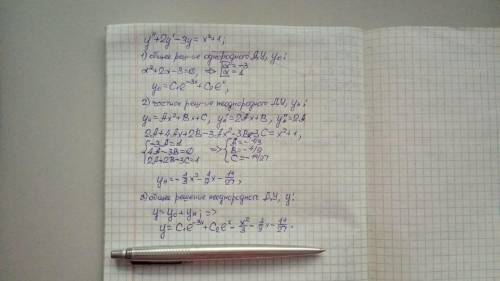 y''+2y'-3y=x²+1;
1) общее реш-ие однородного ДУ, y₀:
α²+2α-3=0; => [α=-3 α=1
y₀=C₁e^(-3x)+C₂e^x;
2) частное реш-ие неоднородного ДУ, yн:
yн=Ax²+Bx+C, y'н=2Ax+B, y''н=2A
2A+4Ax+2B-3Ax²-3Bx-3C=x²+1,
{-3A=1 {A=-1/3
{4A-3B=0 => {B=-4/9
{2A+2B-3C=1 {C=-
yн=-1/3x²-4/9x-
3) общее решение неоднородного ДУ, y:
y=y₀+yн; =>
y=C₁e^(-3x)+C₂e^x-x²/3-4/9x-